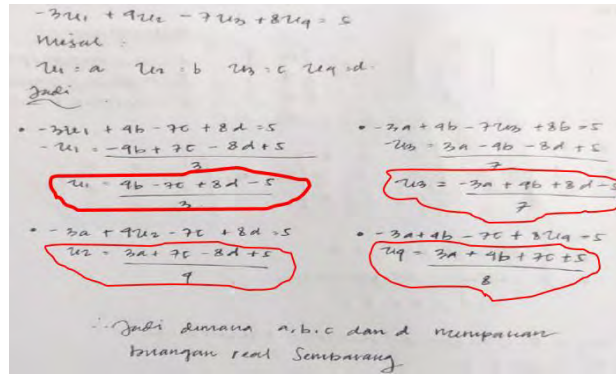 -3x₁ + 4x₂ - 7x₃ + 8x₄ = 5
misal :
x₁ = a x₂ = b x₃ = c x₄ = d.
Jadi
• -3x₁ + 4b - 7c + 8d = 5
-x₁ = -4b + 7c - 8d + 5
3
x₁ = 4b - 7c + 8d - 5
3
• -3a + 4x₂ - 7c + 8d = 5
x₂ = 3a + 7c - 8d + 5
4
• -3a + 4b - 7x₃ + 8b = 5
-x₃ = 3a - 4b - 8d + 5
7
x₃ = -3a + 4b + 8d - 5
7
• -3a + 4b - 7c + 8x₄ = 5
x₄ = 3a + 4b + 7c + 5
8
∴ Jadi dimana a, b, c dan d merupakan
bilangan real Sembarang